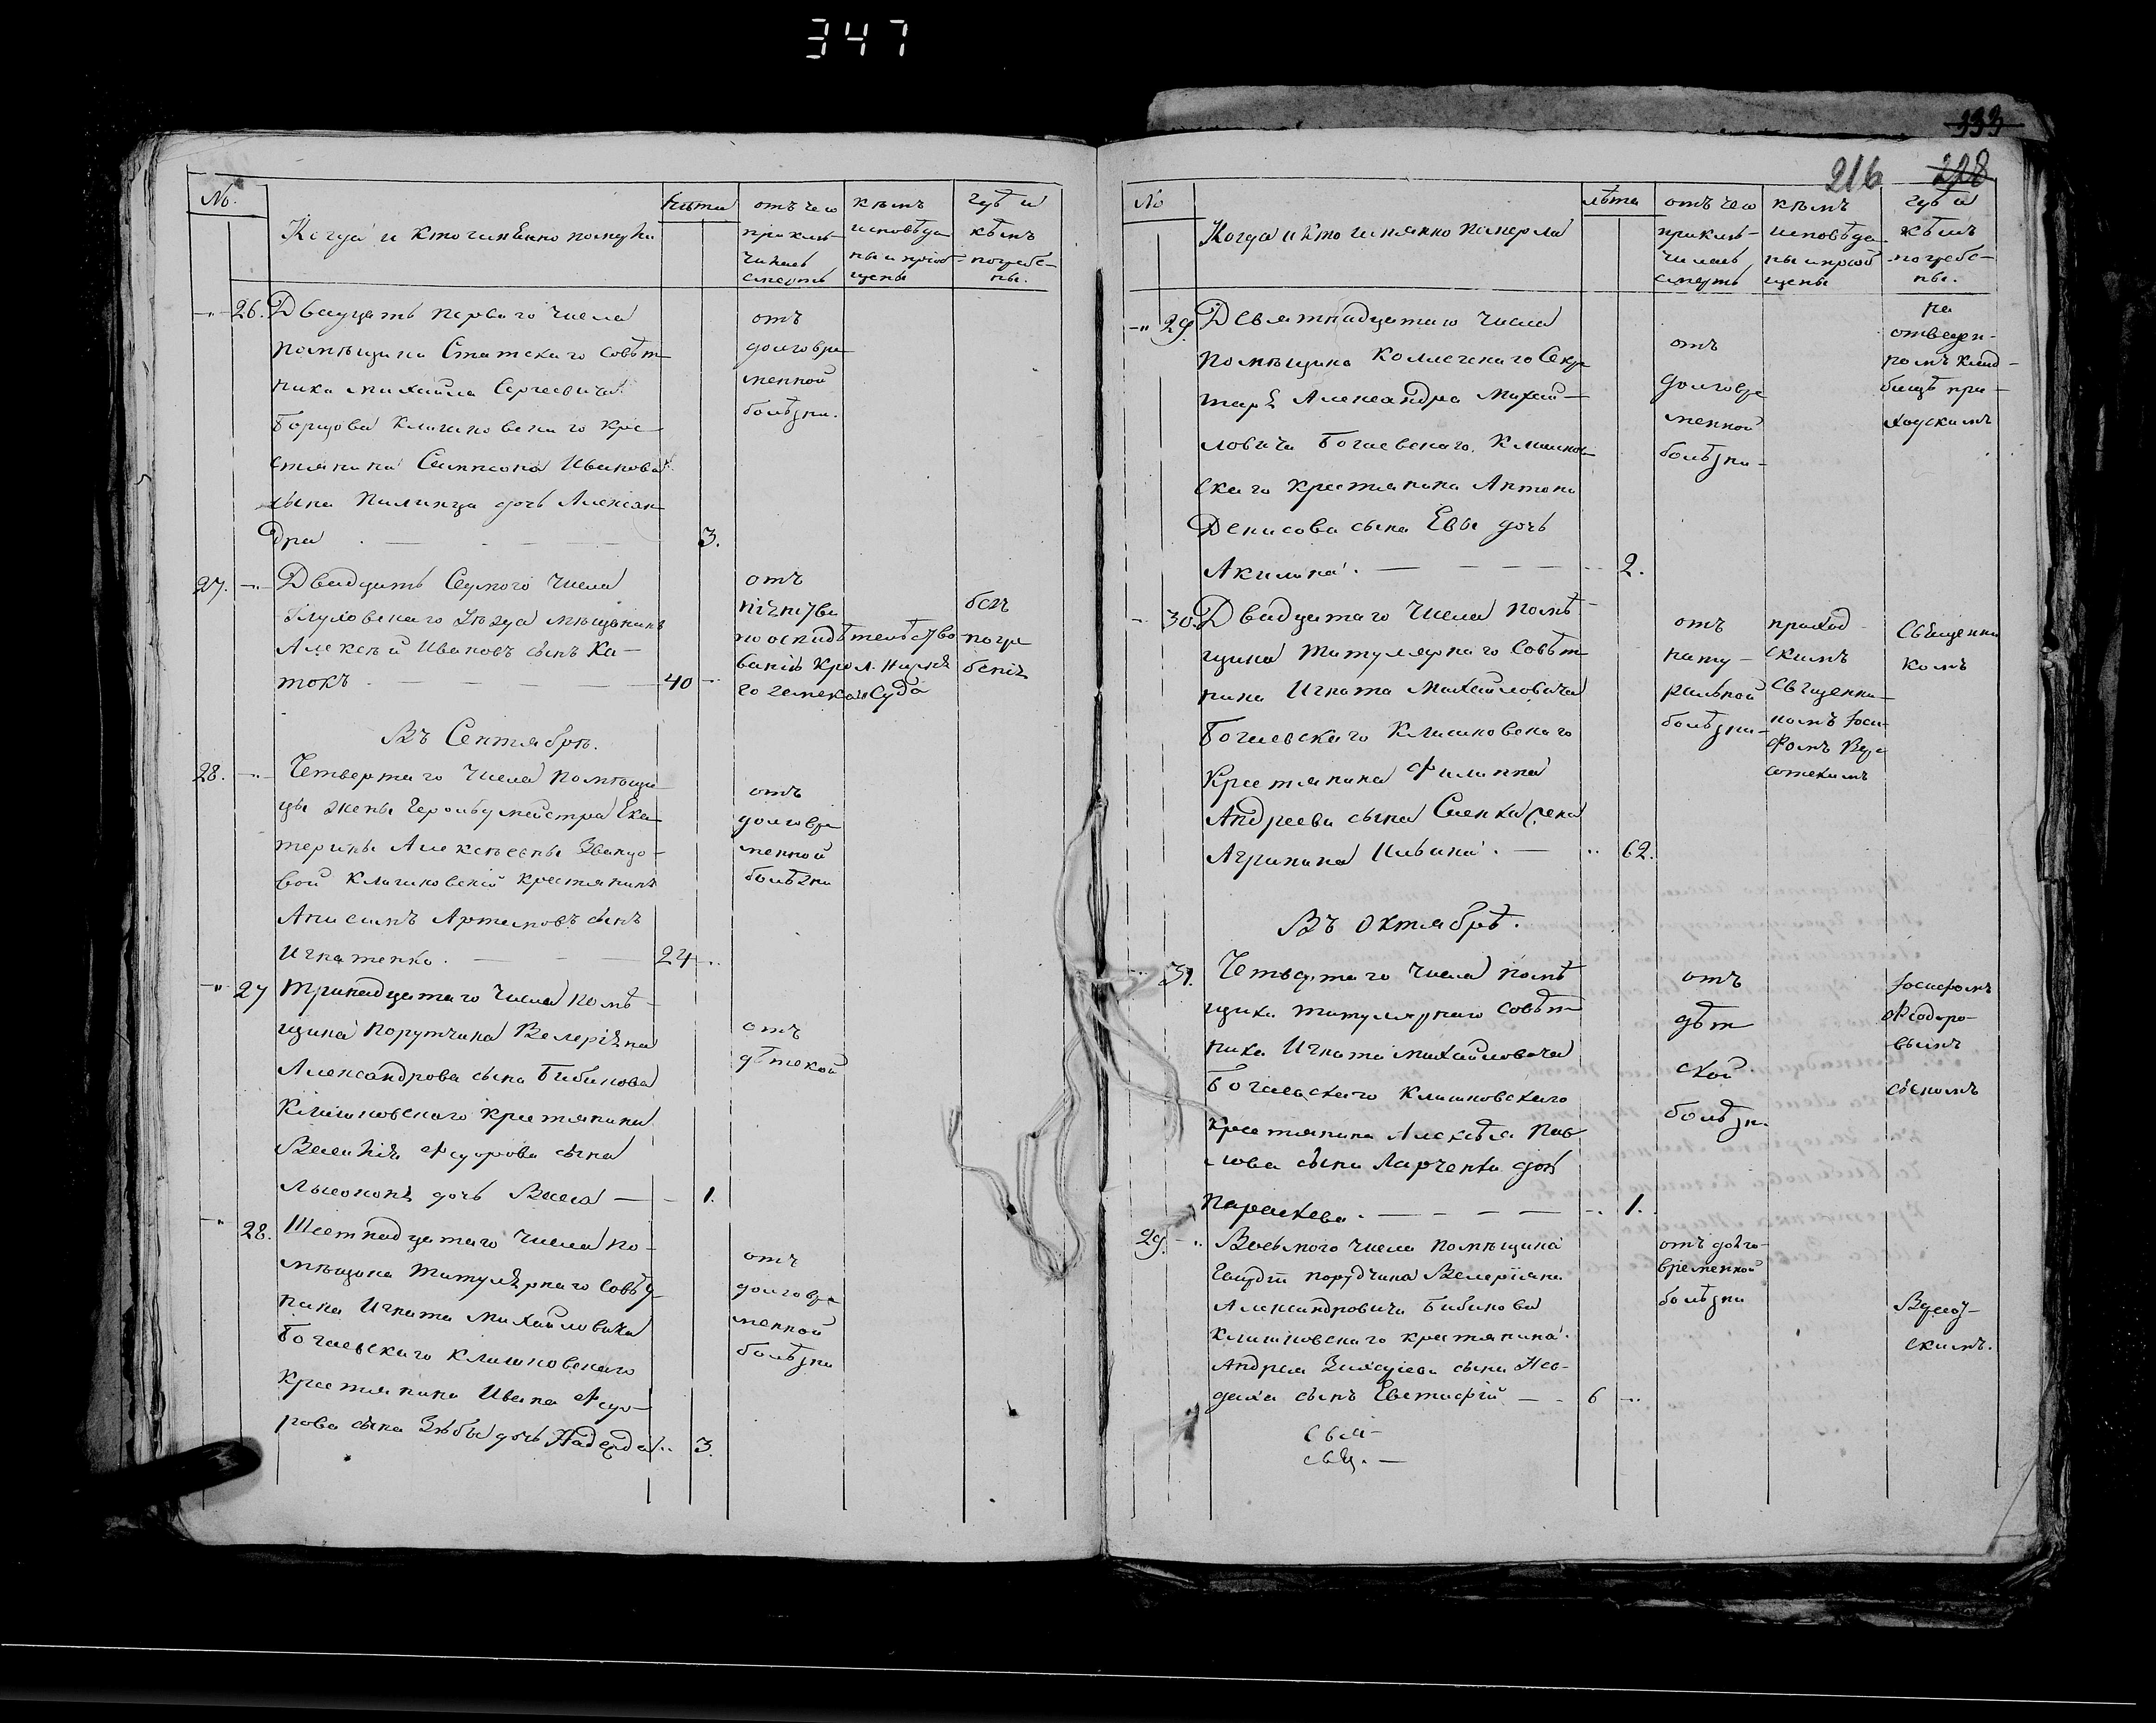 347
333
216 228
№. Когда и кто именно померли лѣта отъ чего приклю- чилась смерть кѣмъ исповѣда- ны и приоб- щены гдѣ и кѣмъ погребе- ны.
26. Двадцать перваго числа
помѣщика Статскаго совѣт-
ника Михайла Сергеевича
Борщова Клишковскаго кре-
стянина Симиона Иванова
сына дочь Алексан-
дра 3.
отъ
долговре
менной
болѣзни.
27. Двадцать Седмого числа
Глуховскаго уѣзда мѣщанинъ
Алексѣй Ивановъ сынъ Ка-
токъ 40
отъ
пiянства
по освидѣтельство-
го земскаго Суда
безъ
погре
бенiя
Въ Сентябрѣ.
28. Четвертаго числа помѣщи
цы жены Ека
терины Алексѣевны Званцо-
вой Клишковскiй крестянинъ
Анисимъ Артемовъ сынъ
Игнатенко. 24
отъ
долговре
менной
болѣзни
27 Тринадцатаго числа помѣ-
щика порутчика Валерiяна
Александрова сына Бибикова
Клишковскаго крестянина
Василiя Федорова сына
дочь Васса 1.
отъ
дѣтской
28. Шестнадцатаго числа по-
мѣщика Титулярнаго Совѣт-
ника Игната Михайловича
Богаевскаго Клишковскаго
Крестянина Ивана Федо-
рова сына Зябы дочь Надежда 3.
отъ
долговре
менной
болѣзни
№ Когда и кто именно померли лѣта отъ чего приклю- чилась смерть кѣмъ исповѣда- ны и приоб щены гдѣ и кѣмъ погребе- ны.
29. Девятнадцатаго числа
помѣщика Коллежскаго Секре
таря Александра Михай-
ловича Богаевскаго Клишков-
скаго крестянина Антона
Денисова сына Евы дочь
Акилина. 2.
отъ
долговре
менной
болѣзни-
на
отведен-
номъ клад-
бищѣ при-
ходскимъ
30. Двадцатаго числа помѣ-
щика Титулярнаго Совѣт-
ника Игната Михайловича
Богаевскаго Клишковскаго
Крестянина Филиппа
Андреева сына жена
Агрипина Ильина. 62.
отъ
нату-
ральной
болѣзни-
приход
скимъ
священни-
комъ Iоси-
фомъ
Священни
комъ
Въ Октябрѣ.
31. Четвертаго числа помѣ
щика титулярнаго совѣт-
ника Игната Михайловича
Богаевскаго Клишковскаго
крестянина Алексѣя Пав
лова сына Ларченка дочь
Параскева. 1.
отъ
дѣт
ской
болѣзн.
Iосифомъ
Феодоро-
вымъ
29. Восьмого числа помѣщика
Гвардiи порутчика Валерiяна
Александровича Бибикова
Клишковскаго крестянина
Андрея сына
сынъ Евстафiй 6
отъ долго-
временной
болѣзни
скимъ.